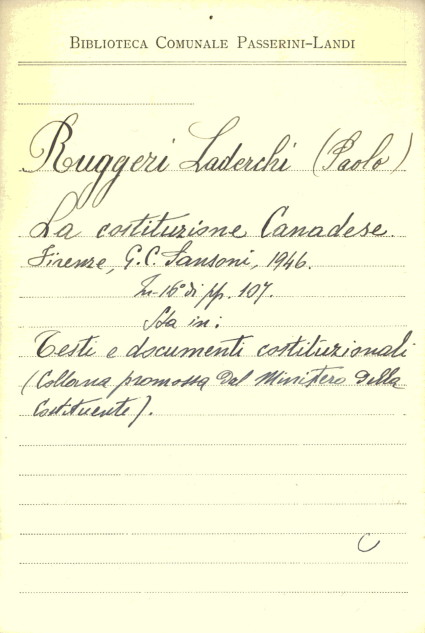 BIBLIOTECA COMUNALE PASSERINI-LANDI
Ruggeri Laderchi (Paolo)
La costituzione Canadese.
Firenze, G.C. Sansoni, 1946.
In-16° di pp. 107.
Sta in:
Testi e documenti costituzionali
(Collana promossa dal Ministero della
Costituente).
C